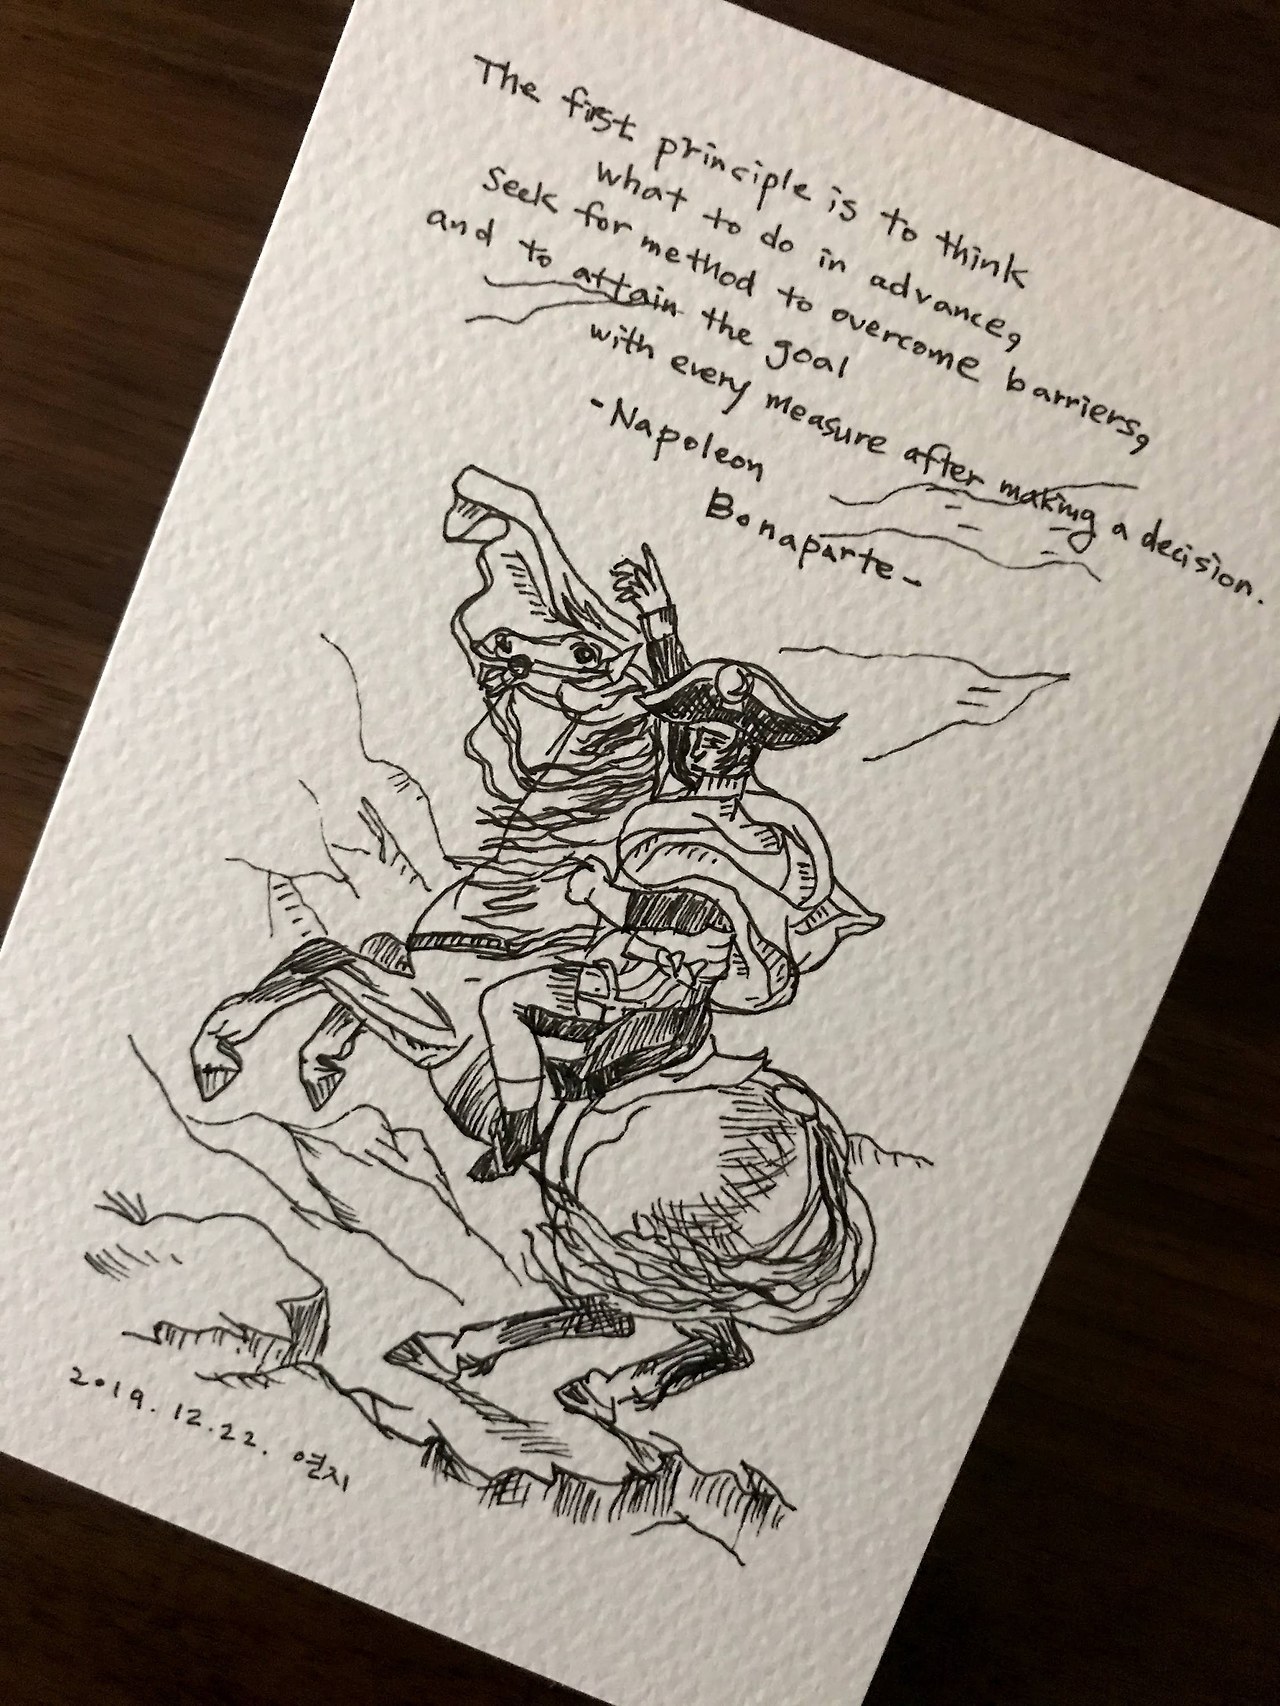 The first principle is to think
what to do in advance,
Seek for method to overcome barriers,
and to attain the goal
with every measure after making a decision.
-Napoleon
Bonaparte-
2019.12.22. 연지